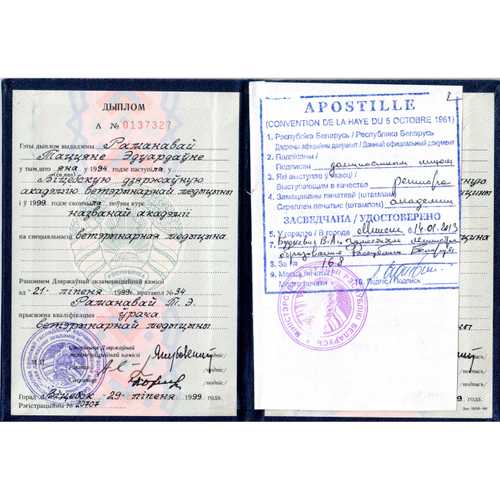 ДЫПЛОМ
А № 0137327
Гэты дыплом выдадзены Рашанавай
Таццяне Эдуардаўне
у тым, што яна ў 1994 годзе паступіла ў
Віцебскую дзяржаўную
акадэмію ветэрынарнай медыцыны
і ў 1999 годзе скончыла поўны курс
названай акадэміі
па спецыяльнасці ветэрынарная медыцына
Рашэннем Дзяржаўнай экзаменацыйнай камісіі
ад 21 ліпеня 1999г. пратакол № 34
Рашанавай Т.Э.
прысвоена кваліфікацыя урача
ветэрынарнай медыцыны
Старшыня Дзяржаўнай
экзаменацыйнай камісіі
/подпіс/
Рэктар
/подпіс/
Сакратар
/подпіс/
Горад Віцебск 29 ліпеня 1999 года.
Рэгістрацыйны № 20707
2
APOSTILLE
(CONVENTION DE LA HAYE DU 5 OCTOBRE 1961)
1. Рэспубліка Беларусь / Республика Беларусь
Дадзены афіцыйны дакумент / Данный официальный документ
2. Падпісаны /
Подписан должностным лицом
3. Які выступаў у якасці /
Выступающим в качестве ректора
4. Замацаваны пячаткай (штампам) /
Скреплен печатью (штампом) академии
ЗАСВЕДЧАНА / УДОСТОВЕРЕНО
5. У горадзе / В городе Минске 6. 14.01.2013
7.
образования Республики Беларусь
8. За № 168
9. Месца пячаткі /
Место печати
10. Подпіс /
Подпись